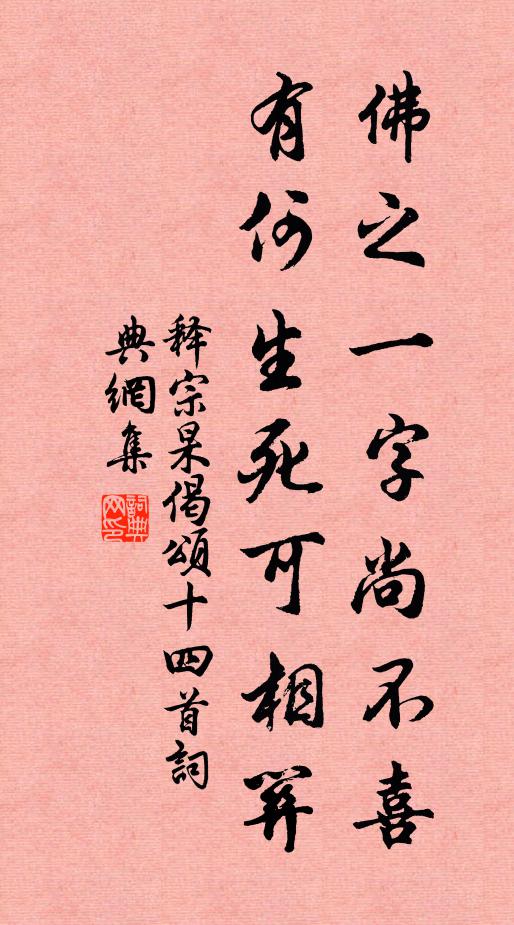 佛之一字尚不喜
有何生死可相關
释宗杲偈頌十四首詞
典網集
詞典网印